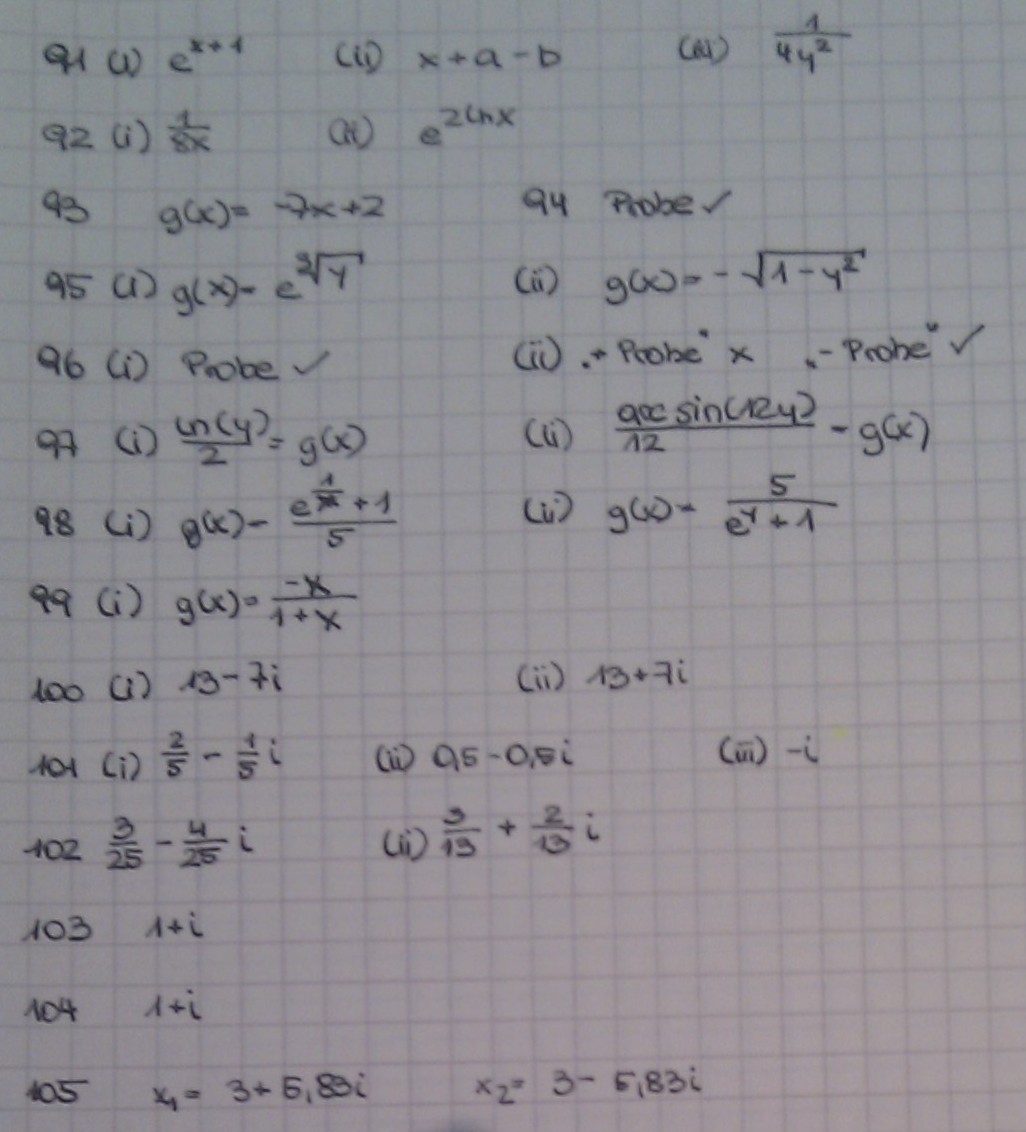 91 (i) e^{x+1} (ii) x+a-b (iii) \frac{1}{4y^2}
92 (i) \frac{1}{8x} (ii) e^{2lnx}
93 g(x)= -7x+2 94 Probe ✓
95 (i) g(x)= e^{\sqrt[3]{y}} (ii) g(x)= -\sqrt{1-y^2}
96 (i) Probe ✓ (ii) „+ Probe“ x „- Probe“ ✓
97 (i) \frac{ln(y)}{2} = g(x) (ii) \frac{arcsin(12y)}{12} = g(x)
98 (i) g(x)= \frac{e^{\frac{1}{x}}+1}{5} (ii) g(x)= \frac{5}{e^y+1}
99 (i) g(x)= \frac{-x}{1+x}
100 (i) 13-7i (ii) 13+7i
101 (i) \frac{2}{5} - \frac{1}{5}i (ii) 0,5-0,5i (iii) -i
102 \frac{3}{25} - \frac{4}{25}i (ii) \frac{3}{13} + \frac{2}{13}i
103 1+i
104 1+i
105 x_1= 3+5,83i x_2= 3-5,83i